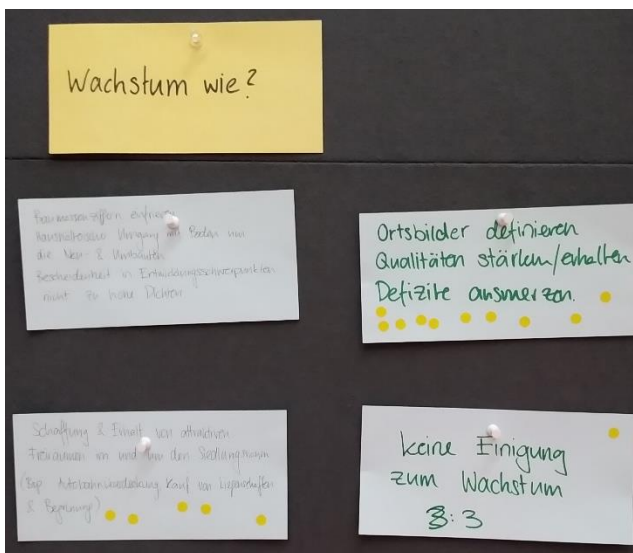 Wachstum wie?
Baumassenziffern einfrieren
Haushälterischer Umgang mit Boden
die Neu- & Umbauten
Bescheidenheit in Entwicklungsschwerpunkten
nicht zu hohe Dichten
Ortsbilder definieren
Qualitäten stärken/erhalten
Defizite ausmerzen.
Schaffung & Erhalt von attraktiven
Freiräumen im und um den Siedlungsraum
(Bsp. Autobahnüberdeckung Kauf von Liegenschaften
& Begrünung)
keine Einigung
zum Wachstum
3:3